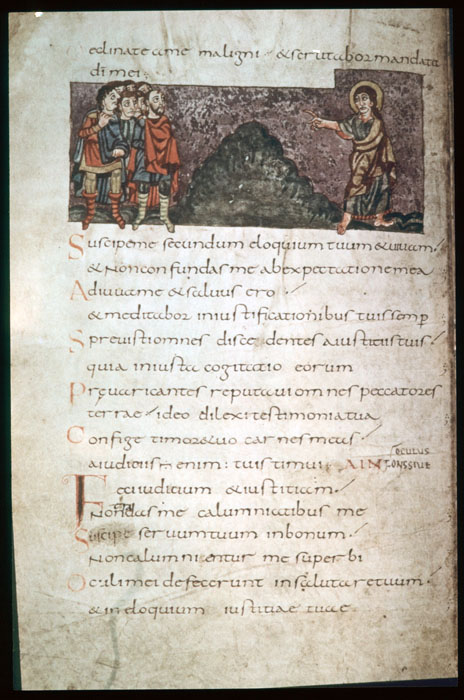 eclinateame maligni · &scrutabor mandata
di mei ·
Suscipeme secundum eloquium tuum & vivam ·
& Non confundas me abexpectatione mea
Adiuva me & salvus ero
& meditabor iniustificationibus tuis semp
Sprevisti omnes discedentes a iustitiis tuis ·
quia iniusta cogitatio eorum
Prevaricantes reputavi omnes peccatores
terrae ideo dilexi testimonia tua
Confige timore tuo carnes meas
a iudiciis enim tuis timui · AIN
Feci iudicium & iustitiam
Non tradas me calumniatibus me
Suscipe servum tuum in bonum
Non calumnientur me superbi
Oculi mei defecerunt in salutare tuum ·
& in eloquium iustitiae tuae